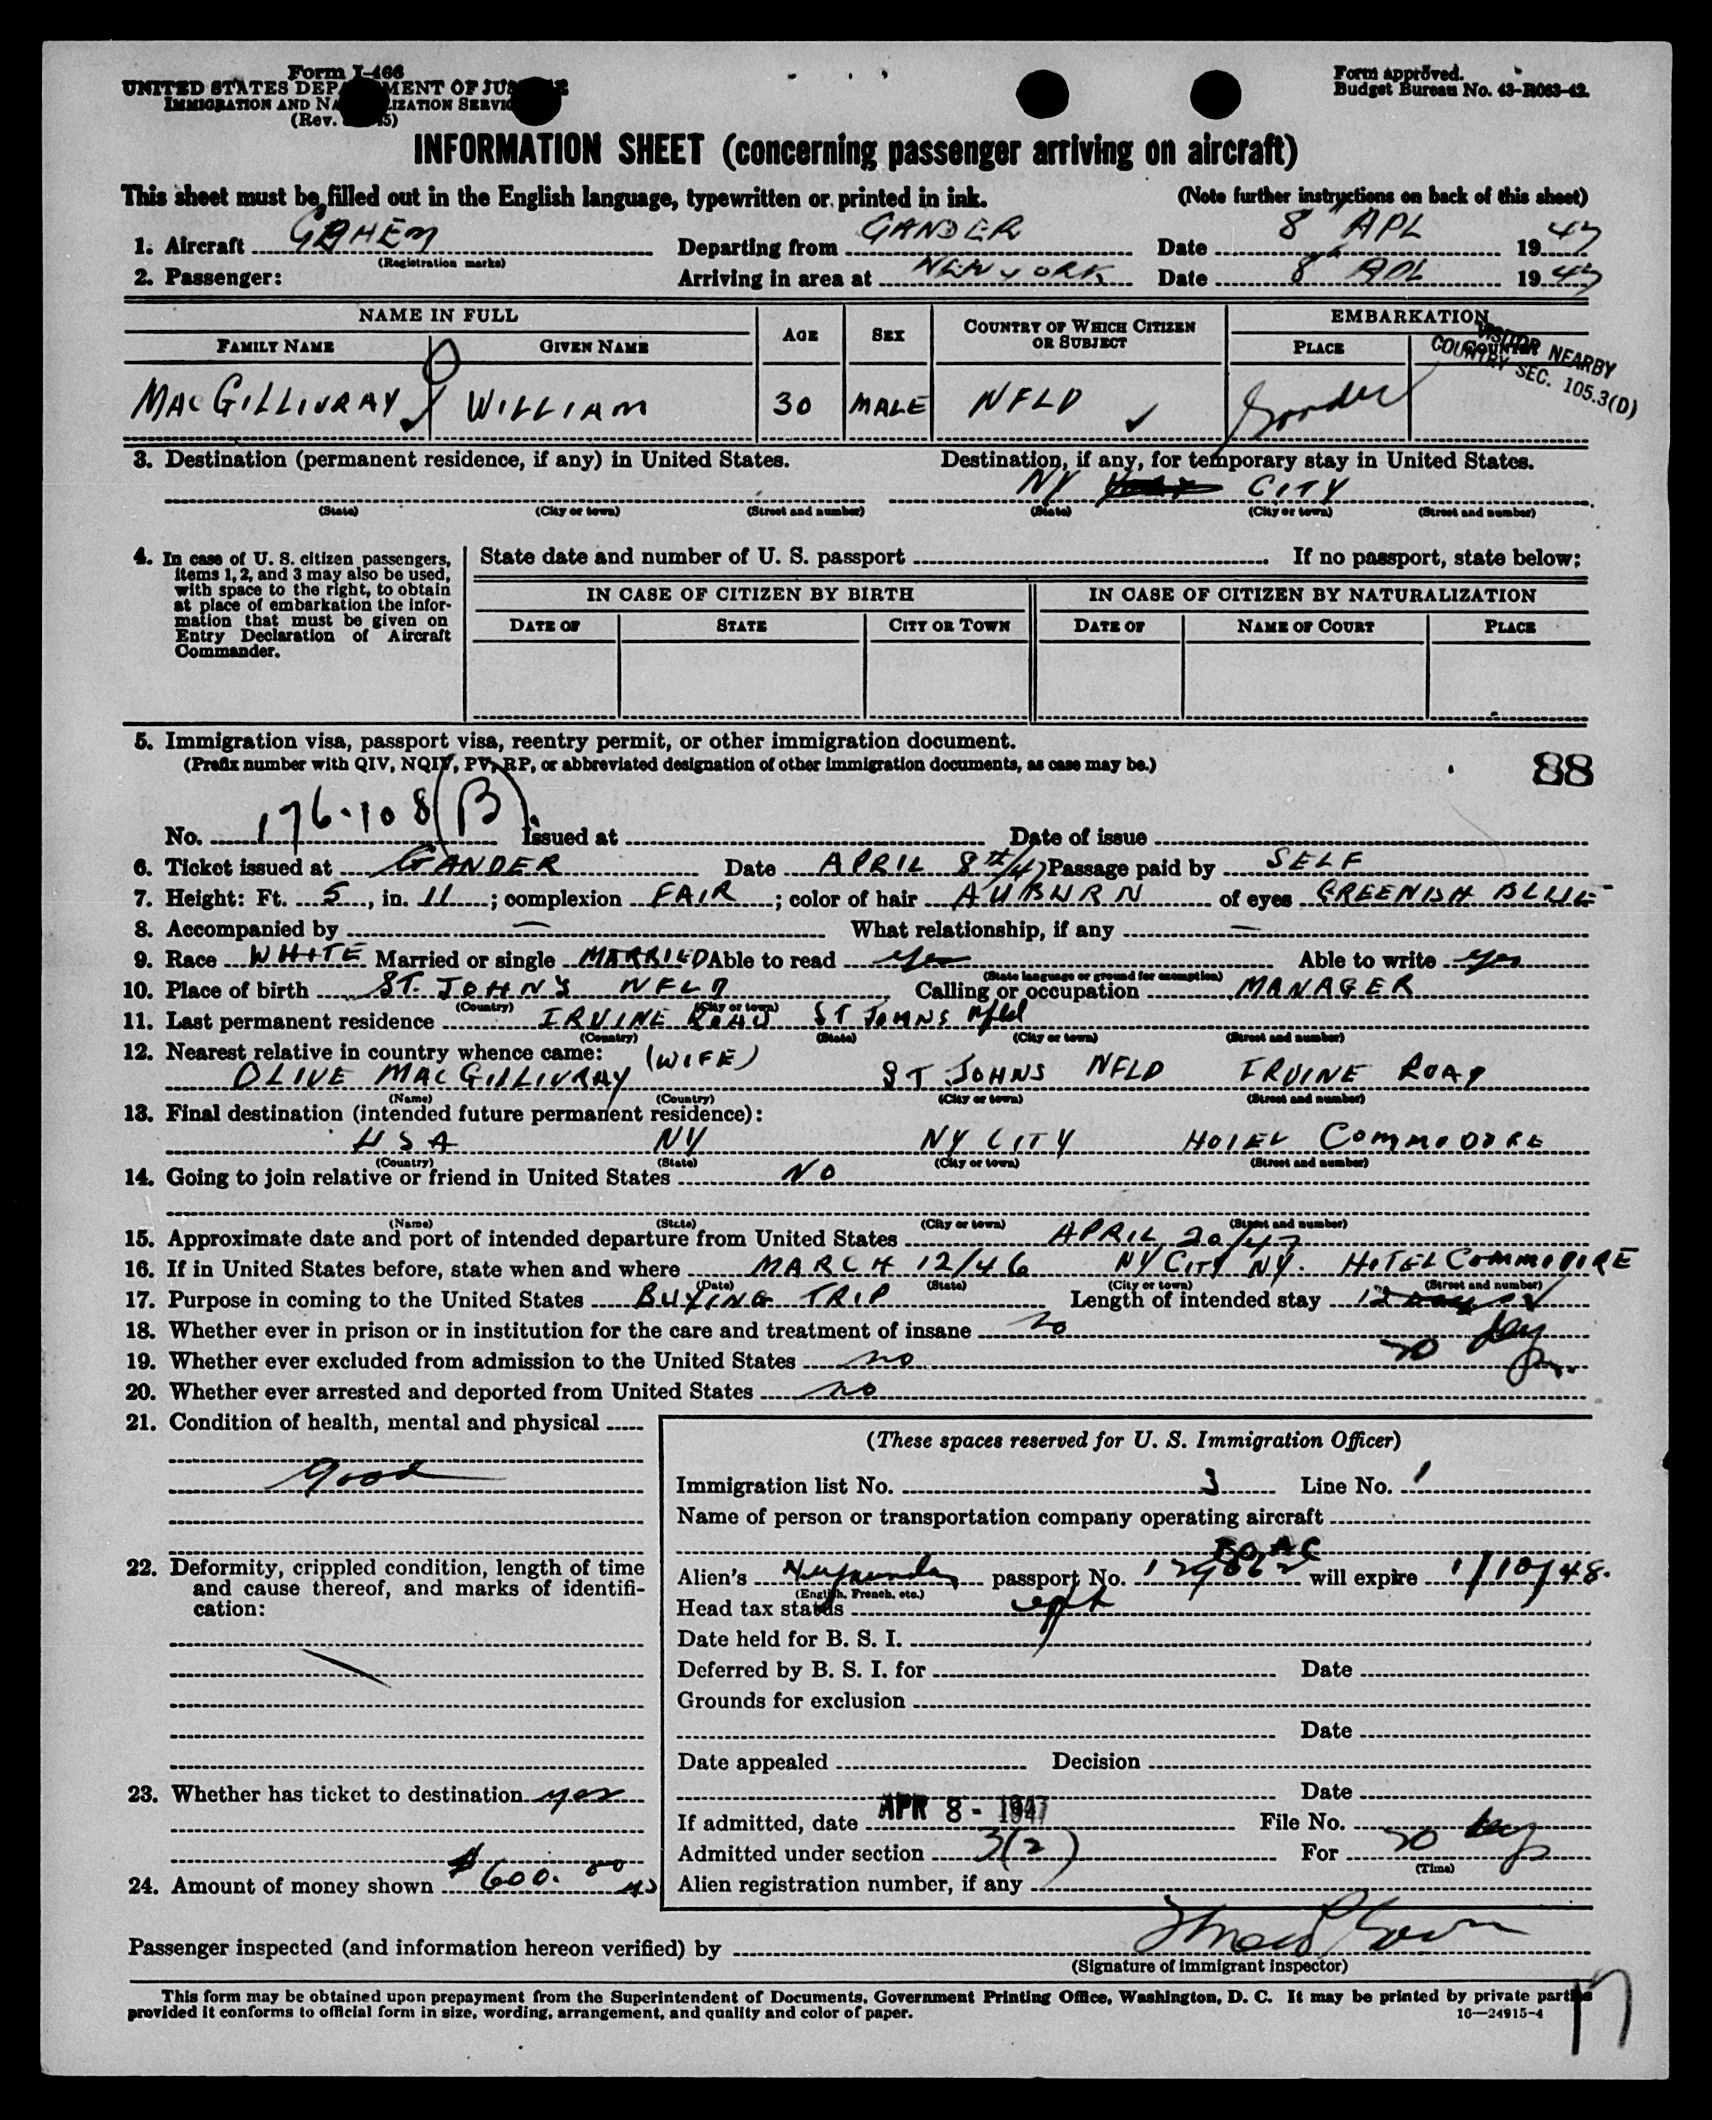 Form I-466
UNITED STATES DEPARTMENT OF JUSTICE
IMMIGRATION AND NATURALIZATION SERVICE
(Rev.
Form approved.
Budget Bureau No. 43-R063-42.
INFORMATION SHEET (concerning passenger arriving on aircraft)
This sheet must be filled out in the English language, typewritten or printed in ink. (Note further instructions on back of this sheet)
1. Aircraft GAHEM Departing from GANDER Date 8 APL 1947
(Registration marks)
2. Passenger: Arriving in area at NEW YORK Date 8 APL 1947
NAME IN FULL AGE SEX COUNTRY OF WHICH CITIZEN OR SUBJECT EMBARKATION
FAMILY NAME GIVEN NAME PLACE COUNTRY
VISITOR NEARBY
COUNTRY SEC. 105.3(D)
MACGILLIVRAY WILLIAM 30 MALE NFLD Gander
3. Destination (permanent residence, if any) in United States. Destination, if any, for temporary stay in United States.
NY CITY
(State) (City or town) (Street and number) (State) (City or town) (Street and number)
4. In case of U. S. citizen passengers,
items 1, 2, and 3 may also be used,
with space to the right, to obtain
at place of embarkation the infor-
mation that must be given on
Entry Declaration of Aircraft
Commander.
State date and number of U. S. passport If no passport, state below:
IN CASE OF CITIZEN BY BIRTH IN CASE OF CITIZEN BY NATURALIZATION
DATE OF STATE CITY OR TOWN DATE OF NAME OF COURT PLACE
5. Immigration visa, passport visa, reentry permit, or other immigration document.
(Prefix number with QIV, NQIV, PV, RP, or abbreviated designation of other immigration documents, as case may be.)
88
No. 176.108 (B) Issued at Date of issue
6. Ticket issued at GANDER Date APRIL 8TH/47 Passage paid by SELF
7. Height: Ft. 5, in. 11; complexion FAIR; color of hair AUBURN of eyes GREENISH BLUE
8. Accompanied by — What relationship, if any —
9. Race WHITE Married or single MARRIED Able to read yes Able to write yes
(State language or ground for exemption)
10. Place of birth ST. JOHN'S NFLD Calling or occupation MANAGER
(Country) (City or town)
11. Last permanent residence IRVINE ROAD ST JOHNS Nfld
(Country) (State) (City or town) (Street and number)
12. Nearest relative in country whence came: (WIFE)
OLIVE MACGILLIVRAY ST JOHNS NFLD IRVINE ROAD
(Name) (Country) (City or town) (Street and number)
13. Final destination (intended future permanent residence):
USA NY NY CITY HOTEL COMMODORE
(Country) (State) (City or town) (Street and number)
14. Going to join relative or friend in United States NO
(Name) (State) (City or town) (Street and number)
15. Approximate date and port of intended departure from United States APRIL 20/47
16. If in United States before, state when and where MARCH 12/46 NY CITY NY. HOTEL COMMODORE
(Date) (State) (City or town) (Street and number)
17. Purpose in coming to the United States BUYING TRIP Length of intended stay 12
18. Whether ever in prison or in institution for the care and treatment of insane no
20 days
19. Whether ever excluded from admission to the United States no
20. Whether ever arrested and deported from United States no
21. Condition of health, mental and physical
good
22. Deformity, crippled condition, length of time
and cause thereof, and marks of identifi-
cation:
23. Whether has ticket to destination yes
24. Amount of money shown $600.00
(These spaces reserved for U. S. Immigration Officer)
Immigration list No. 3 Line No. 1
Name of person or transportation company operating aircraft
BOAC
Alien's passport No. will expire 1/10/48.
(English, French, etc.)
Head tax status
Date held for B. S. I.
Deferred by B. S. I. for Date
Grounds for exclusion
Date
Date appealed Decision
Date
If admitted, date APR 8 - 1947 File No.
Admitted under section 3(2) For 20 days
(Time)
Alien registration number, if any
Passenger inspected (and information hereon verified) by
(Signature of immigrant inspector)
This form may be obtained upon prepayment from the Superintendent of Documents, Government Printing Office, Washington, D. C. It may be printed by private parties
provided it conforms to official form in size, wording, arrangement, and quality and color of paper. 16—24915-4
17